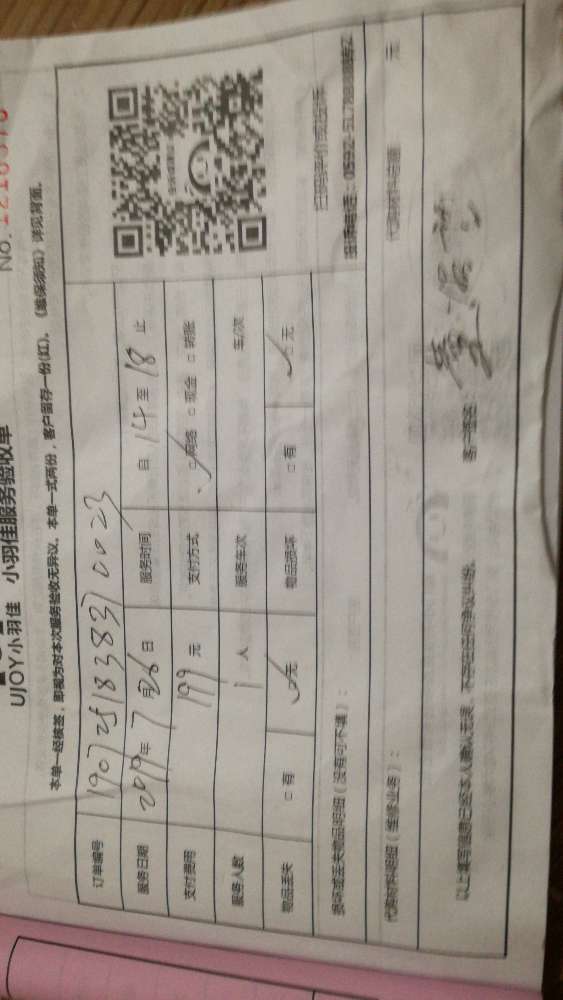 UJOY小羽佳 小羽佳服务验收单
本单一经核签，即视为对本次服务验收无异议。本单一式两份，客户留存一份(红)。《维保须知》详见背面。
订单编号 190725183831 0023
服务日期 2019年7月26日 服务时间 自14至18止
支付费用 199元 支付方式 ☑网络 □现金 □转账
服务人数 1人 服务车次 车/次
物品丢失 □有 ☑无 物品损坏 □有 ☑无
损坏或丢失物品明细（没有可不填）：
代购材料明细（维修业务）： 代购材料金额 元
以上填写信息已经本人确认无误，不存在任何争议纠纷。 客户签名：